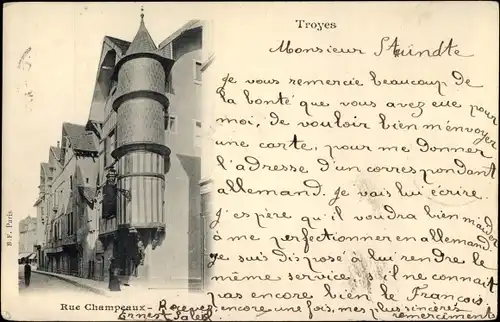 Troyes
Monsieur Stündte
Je vous remercie beaucoup de
la bonté que vous avez eue pour
moi, de vouloir bien m'envoyer
une carte, pour me donner
l'adresse d'un correspondant
allemand. Je vais lui écrire.
J'espère qu'il voudra bien m'aider
à me perfectionner en allemand
Je suis disposé à lui rendre le
même service, s'il ne connaît
pas encore bien le Français.
encore une fois, mes plus sincères
remerciement
B. F. Paris
Rue Champeaux
Ernest